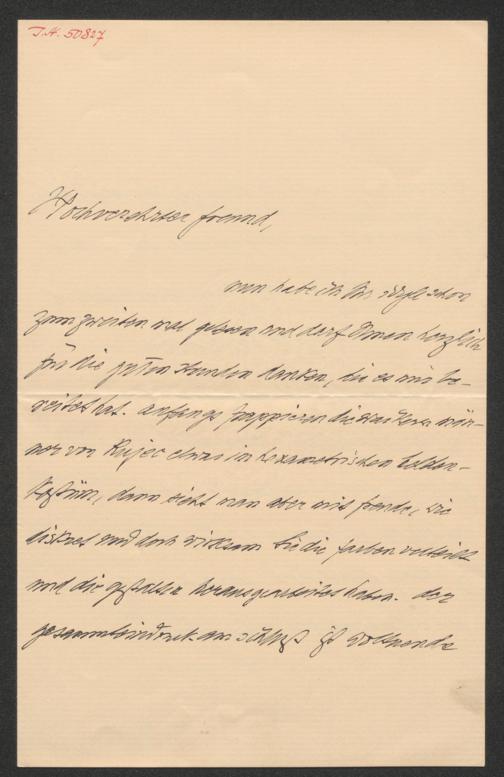 J.N. 50827
Hochverehrter freund,
nun habe ich Ihr idyll schon
zum zweiten mal gelesen und darf Ihnen herzlich
für die guten stunden danken, die es mir be-
reitet hat. anfangs frappieren die wackern män-
ner von etwas im hexametrischen helden-
kostüm, dann sieht man aber mit freude, wie
diskret und doch wirksam Sie die farben verteilt
und die gestalten herausgearbeitet haben. der
gesammteindruck am schluß ist